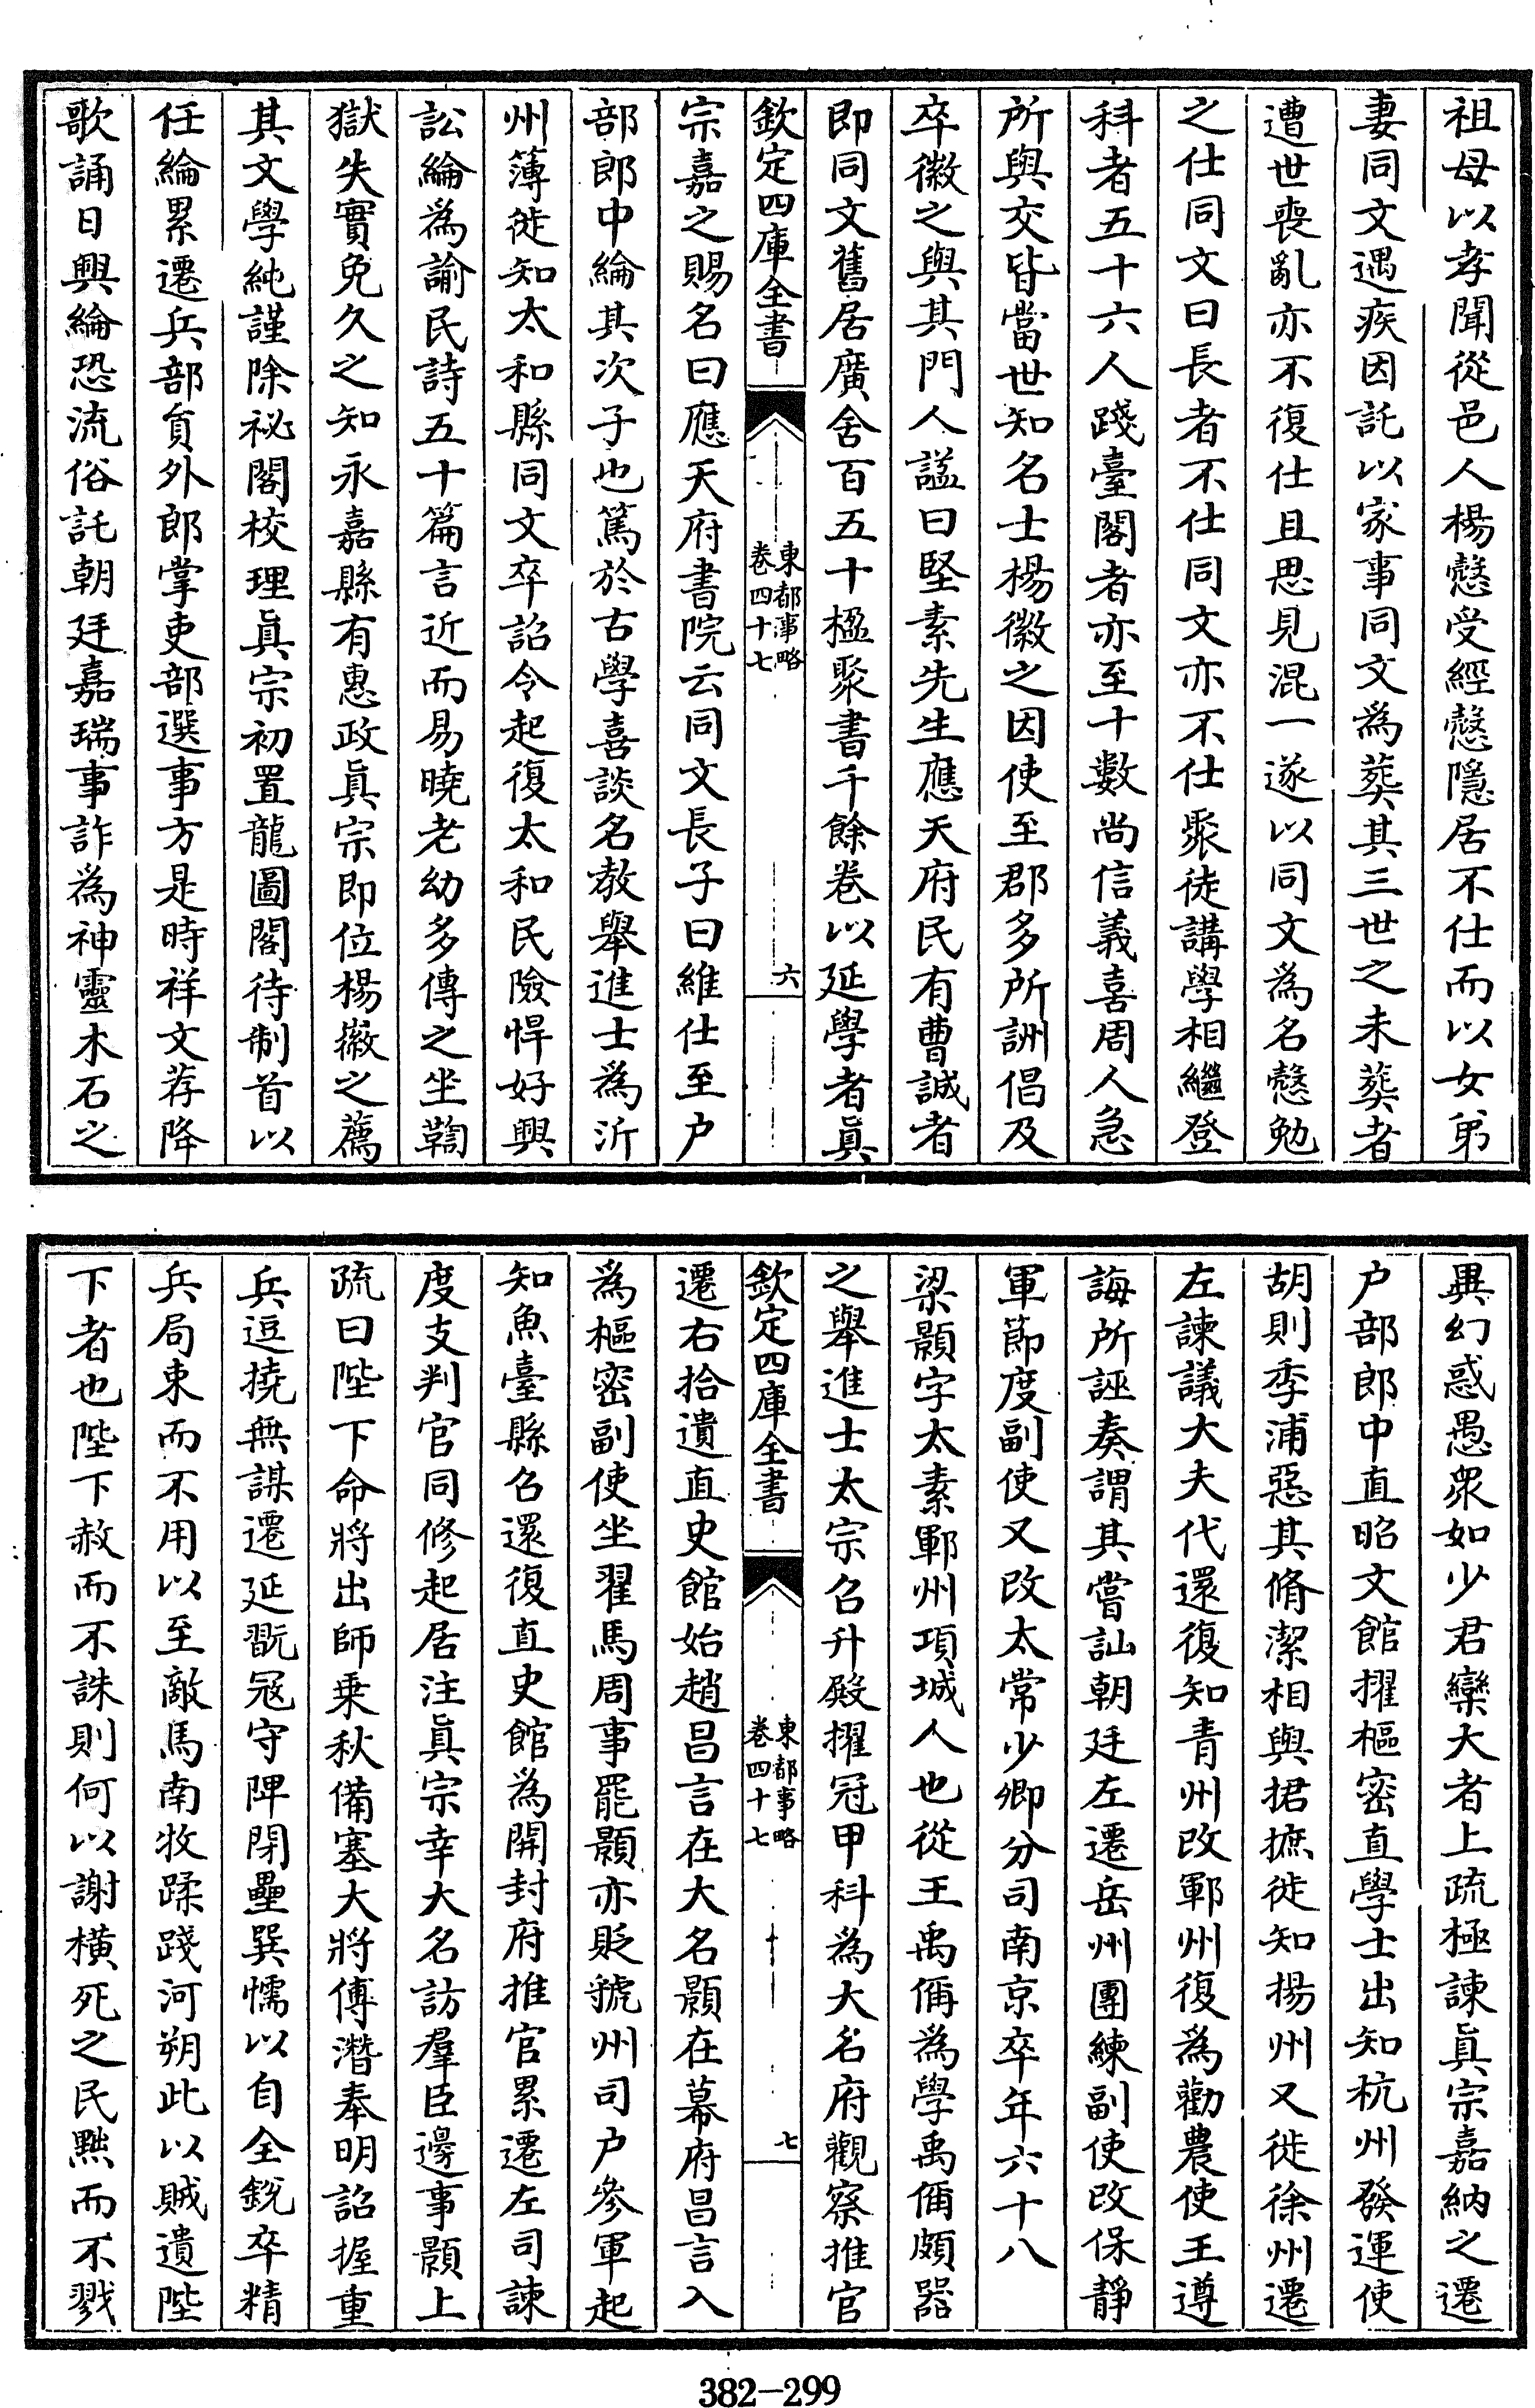 祖母以孝聞從邑人楊慤受經慤隱居不仕而以女弟
妻同文遇疾因託以家事同文為葬其三世之未葬者
遭世喪亂亦不復仕且思見混一遂以同文為名慤勉
之仕同文曰長者不仕同文亦不仕聚徒講學相繼登
科者五十六人踐臺閣者亦至十數尚信義喜周人急
所與交皆當世知名士楊徽之因使至郡多所詶倡及
卒徽之與其門人諡曰堅素先生應天府民有曹誠者
即同文舊居廣舍百五十楹聚書千餘卷以延學者眞
欽定四庫全書
東都事略
卷四十七
六
宗嘉之賜名曰應天府書院云同文長子曰維仕至户
部郎中綸其次子也篤於古學喜談名教舉進士為沂
州簿徙知太和縣同文卒詔令起復太和民險悍好興
訟綸為諭民詩五十篇言近而易曉老幼多傳之坐鞫
獄失實免久之知永嘉縣有惠政眞宗即位楊徽之薦
其文學純謹除祕閣校理眞宗初置龍圖閣待制首以
任綸累遷兵部員外郎掌吏部選事方是時祥文荐降
歌誦日興綸恐流俗託朝廷嘉瑞事詐為神靈木石之
異幻惑愚衆如少君欒大者上疏極諫眞宗嘉納之遷
户部郎中直昭文館擢樞密直學士出知杭州發運使
胡則李浦惡其脩潔相與捃摭徙知揚州又徙徐州遷
左諫議大夫代還復知青州改鄆州復為勸農使王遵
誨所誣奏謂其嘗訕朝廷左遷岳州團練副使改保靜
軍節度副使又改太常少卿分司南京卒年六十八
梁顥字太素鄆州項城人也從王禹偁為學禹偁頗器
之舉進士太宗召升殿擢冠甲科為大名府觀察推官
欽定四庫全書
東都事略
卷四十七
七
遷右拾遺直史館始趙昌言在大名顥在幕府昌言入
為樞密副使坐翟馬周事罷顥亦貶虢州司户參軍起
知魚臺縣召還復直史館為開封府推官累遷左司諫
度支判官同修起居注眞宗幸大名訪羣臣邊事顥上
疏曰陛下命將出師乗秋備塞大將傅濳奉明詔握重
兵逗撓無謀遷延翫冦守陴閉壘巽懦以自全銳卒精
兵局束而不用以至敵馬南牧蹂踐河朔此以賊遺陛
下者也陛下赦而不誅則何以謝橫死之民黜而不戮
382-299